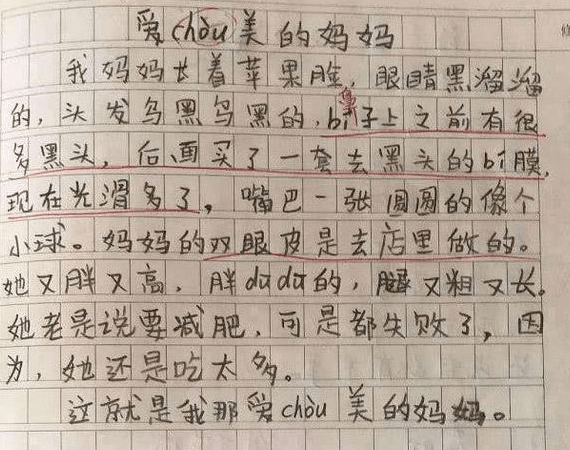 爱chòu美的妈妈
我妈妈长着苹果脸，眼睛黑溜溜
的，头发乌黑乌黑的，bí子上之前有很
多黑头，后面买了一套去黑头的bí膜，
现在光滑多了，嘴巴一张圆圆的像个
小球。妈妈的双眼皮是去店里做的。
她又胖又高，胖dūdū的，腿又粗又长。
她老是说要减肥，可是都失败了，因
为，她还是吃太多。
这就是我那爱chòu美的妈妈。